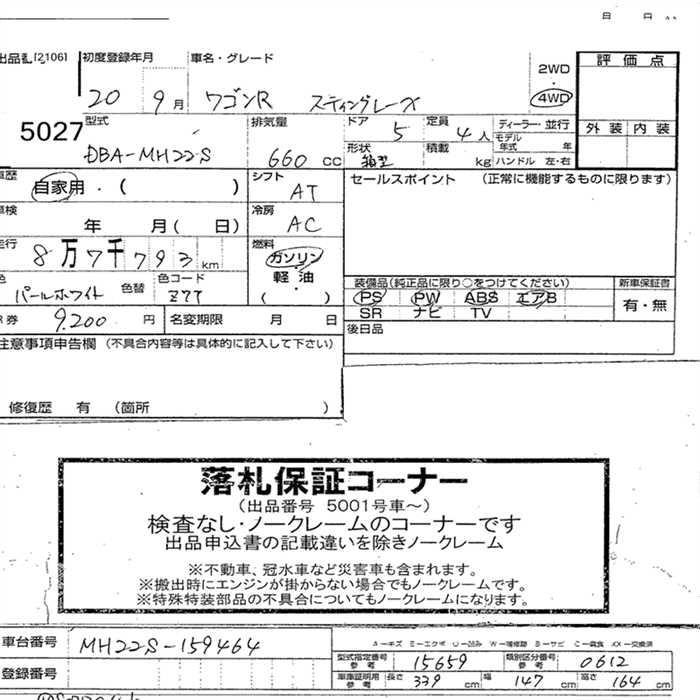 出品番 [2106] 初度登録年月 車名・グレード 2WD ・ 4WD 評価点
20 9月 ワゴンR スティングレーX
外装 内装
5027 型式 DBA-MH22S 排気量 660 cc ドア 5 定員 4人 ディーラー・並行
形状 箱型 積載 kg モデル年式 年 ハンドル 左・右
車歴 自家用・( ) シフト AT セールスポイント (正常に機能するものに限ります)
車検 年 月( 日) 冷房 AC
走行 8万7千793 km 燃料 ガソリン 軽・油 ( )
色 パールホワイト 色替 色コード Z7T
装備品(純正品に限り○をつけてください) 新車保証書
PS PW ABS エアB 有・無
SR ナビ TV
R券 9,200 円 名変期限 月 日 後日品
注意事項申告欄 (不具合内容等は具体的に記入して下さい)
修復歴 有 (箇所 )
落札保証コーナー
(出品番号 5001号車~)
検査なし・ノークレームのコーナーです
出品申込書の記載違いを除きノークレーム
※不動車、冠水車など災害車も含まれます。
※搬出時にエンジンが掛からない場合でもノークレームです。
※特殊特装部品の不具合についてもノークレームになります。
車台番号 MH22S-159464
A－キズ E－エクボ U－凹み W－補修跡 B－サビ C－腐食 XX－交換済
型式指定番号 参考 15659 類別区分番号 参考 0612
登録番号 車庫証明用 参考 長さ 339 cm 幅 147 cm 高さ 164 cm